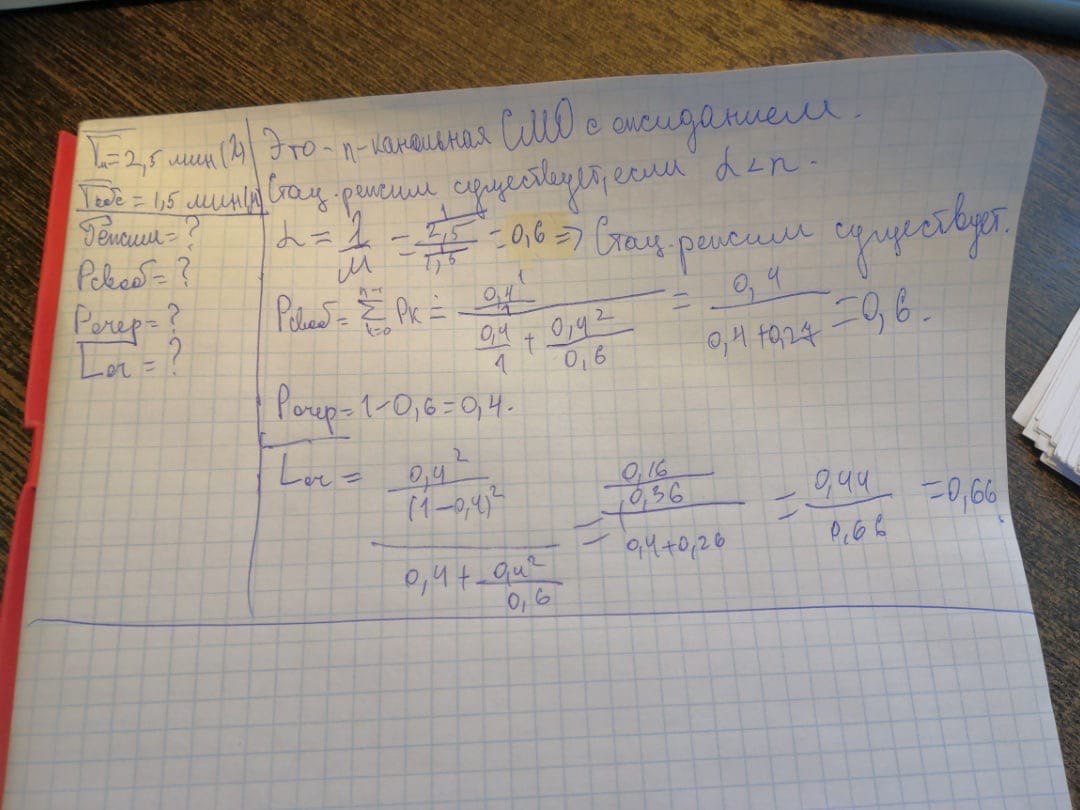 T̅п = 2,5 мин (λ)
T̅обс = 1,5 мин (μ)
Режим = ?
Pсвоб = ?
Pочер = ?
Lоч = ?
Это - n-канальная СМО с ожиданием.
Стац. режим существует, если α < n.
α = λ/μ = (1/2,5)/(1/1,5) = 0,6 => Стац. режим существует.
Pсвоб = Σ(k=0, n-1) Pk = (0,4^1/1)/(0,4/1 + 0,4^2/0,6) = 0,4/(0,4+0,27) = 0,6.
Pочер = 1 - 0,6 = 0,4.
Lоч = (0,4^2/(1-0,4)^2)/(0,4 + 0,4^2/0,6) = (0,16/0,36)/(0,4+0,26) = 0,44/0,66 = 0,66